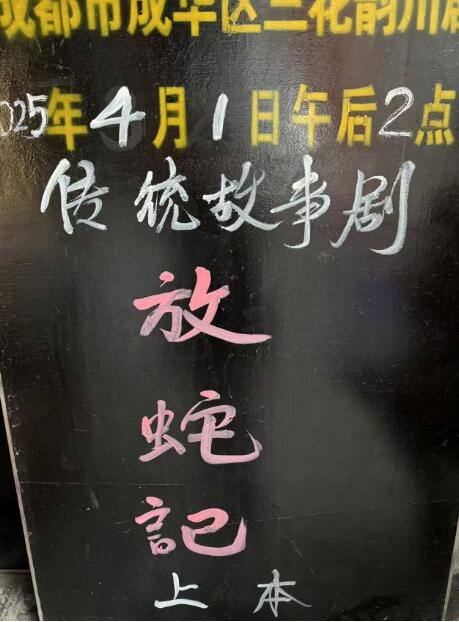 成都市成华区三花韵川剧
2025年4月1日午后2点
传统故事剧
放
蛇
記
上本